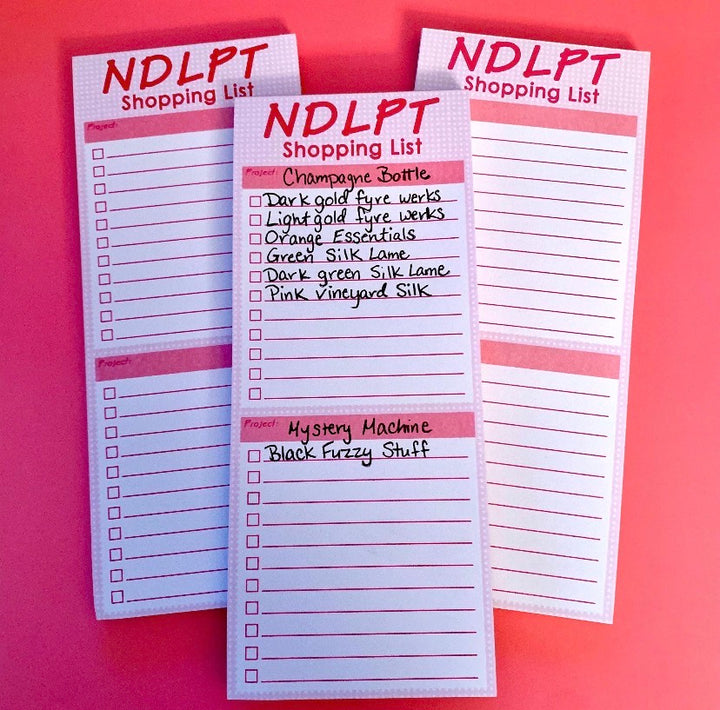 NDLPT
Shopping List
Project:
NDLPT
Shopping List
Project: Champagne Bottle
Dark gold fyre werks
Light gold fyre werks
Orange Essentials
Green Silk Lame
Dark green Silk Lame
Pink vineyard Silk
Project: Mystery Machine
Black Fuzzy Stuff
NDLPT
Shopping List
Project: